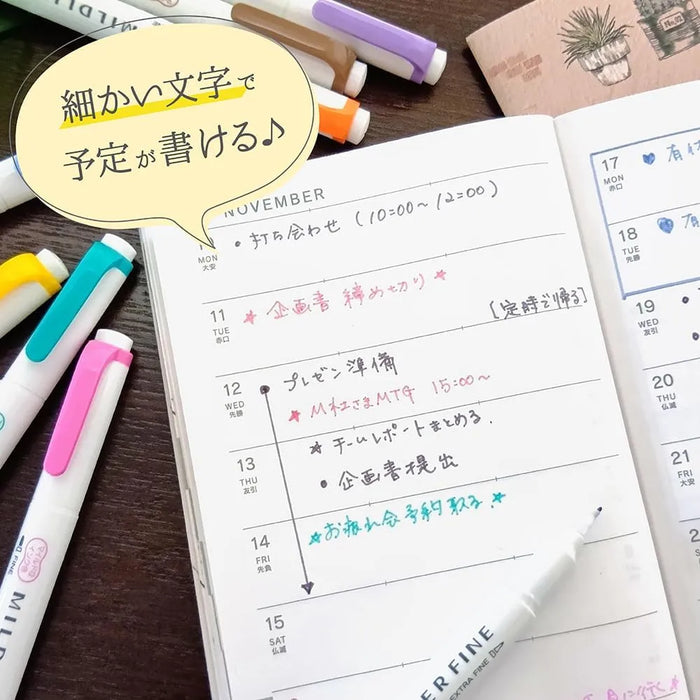 細かい文字で
予定が書ける♪
NOVEMBER
MON
大安
• 打ち合わせ (10:00〜12:00)
11
TUE
赤口
★ 企画書 締め切り ★
[定時で帰る]
12
WED
先勝
• プレゼン準備
★ M社さまMTG 15:00〜
★ チームレポートまとめる.
13
THU
友引
• 企画書提出
14
FRI
先負
★お疲れ会予約取る.★
15
SAT
仏滅
17
MON
赤口
18
TUE
先勝
19
WED
友引
20
THU
仏滅
21
FRI
大安
FINE
MILD
ERFINE
EXTRA FINE